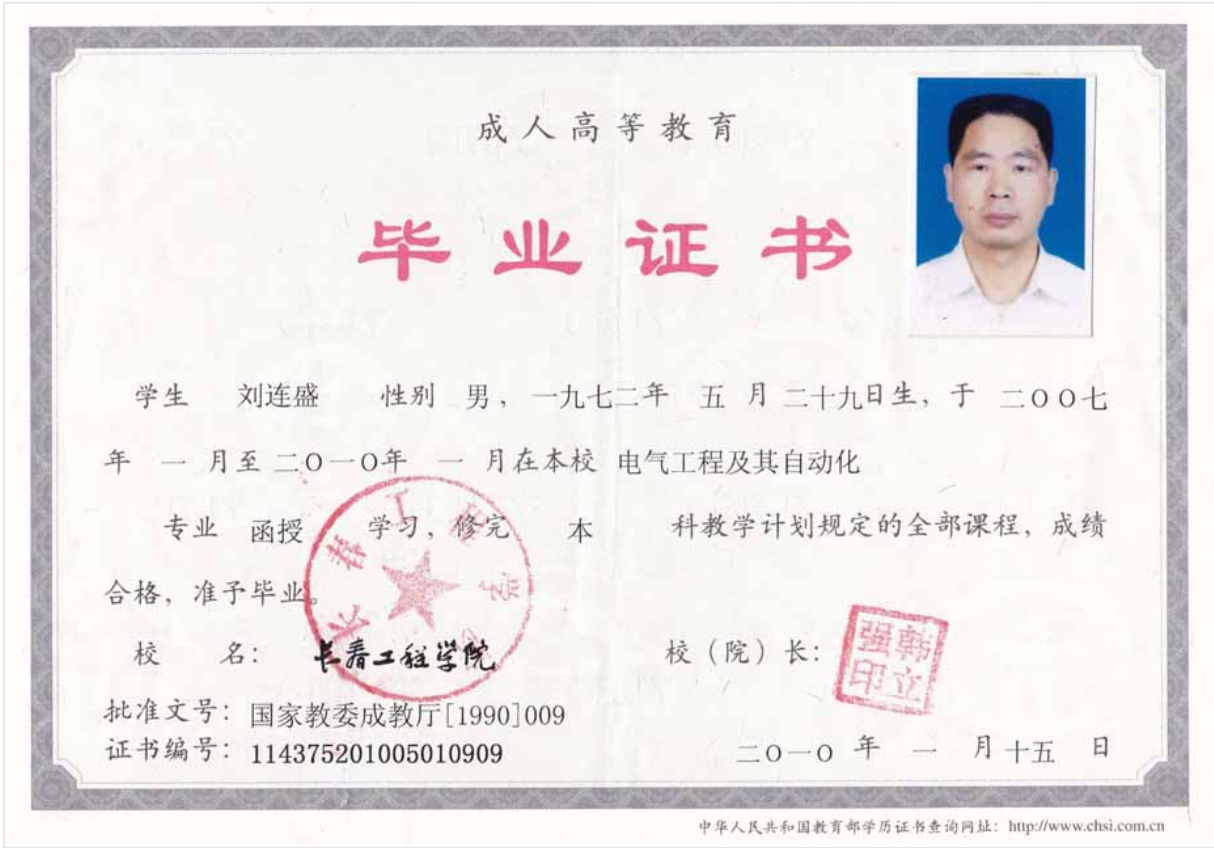 成人高等教育
毕业证书
学生 刘连盛 性别 男，一九七二年 五 月 二十九日生，于 二〇〇七
年 一 月至 二〇一〇年 一 月在本校 电气工程及其自动化
专业 函授 学习，修完 本 科教学计划规定的全部课程，成绩
合格，准予毕业。
校 名： 长春工程学院
校（院）长：
强韩
印立
批准文号：国家教委成教厅[1990]009
证书编号：114375201005010909
二〇一〇 年 一 月 十五 日
中华人民共和国教育部学历证书查询网址：http://www.chsi.com.cn